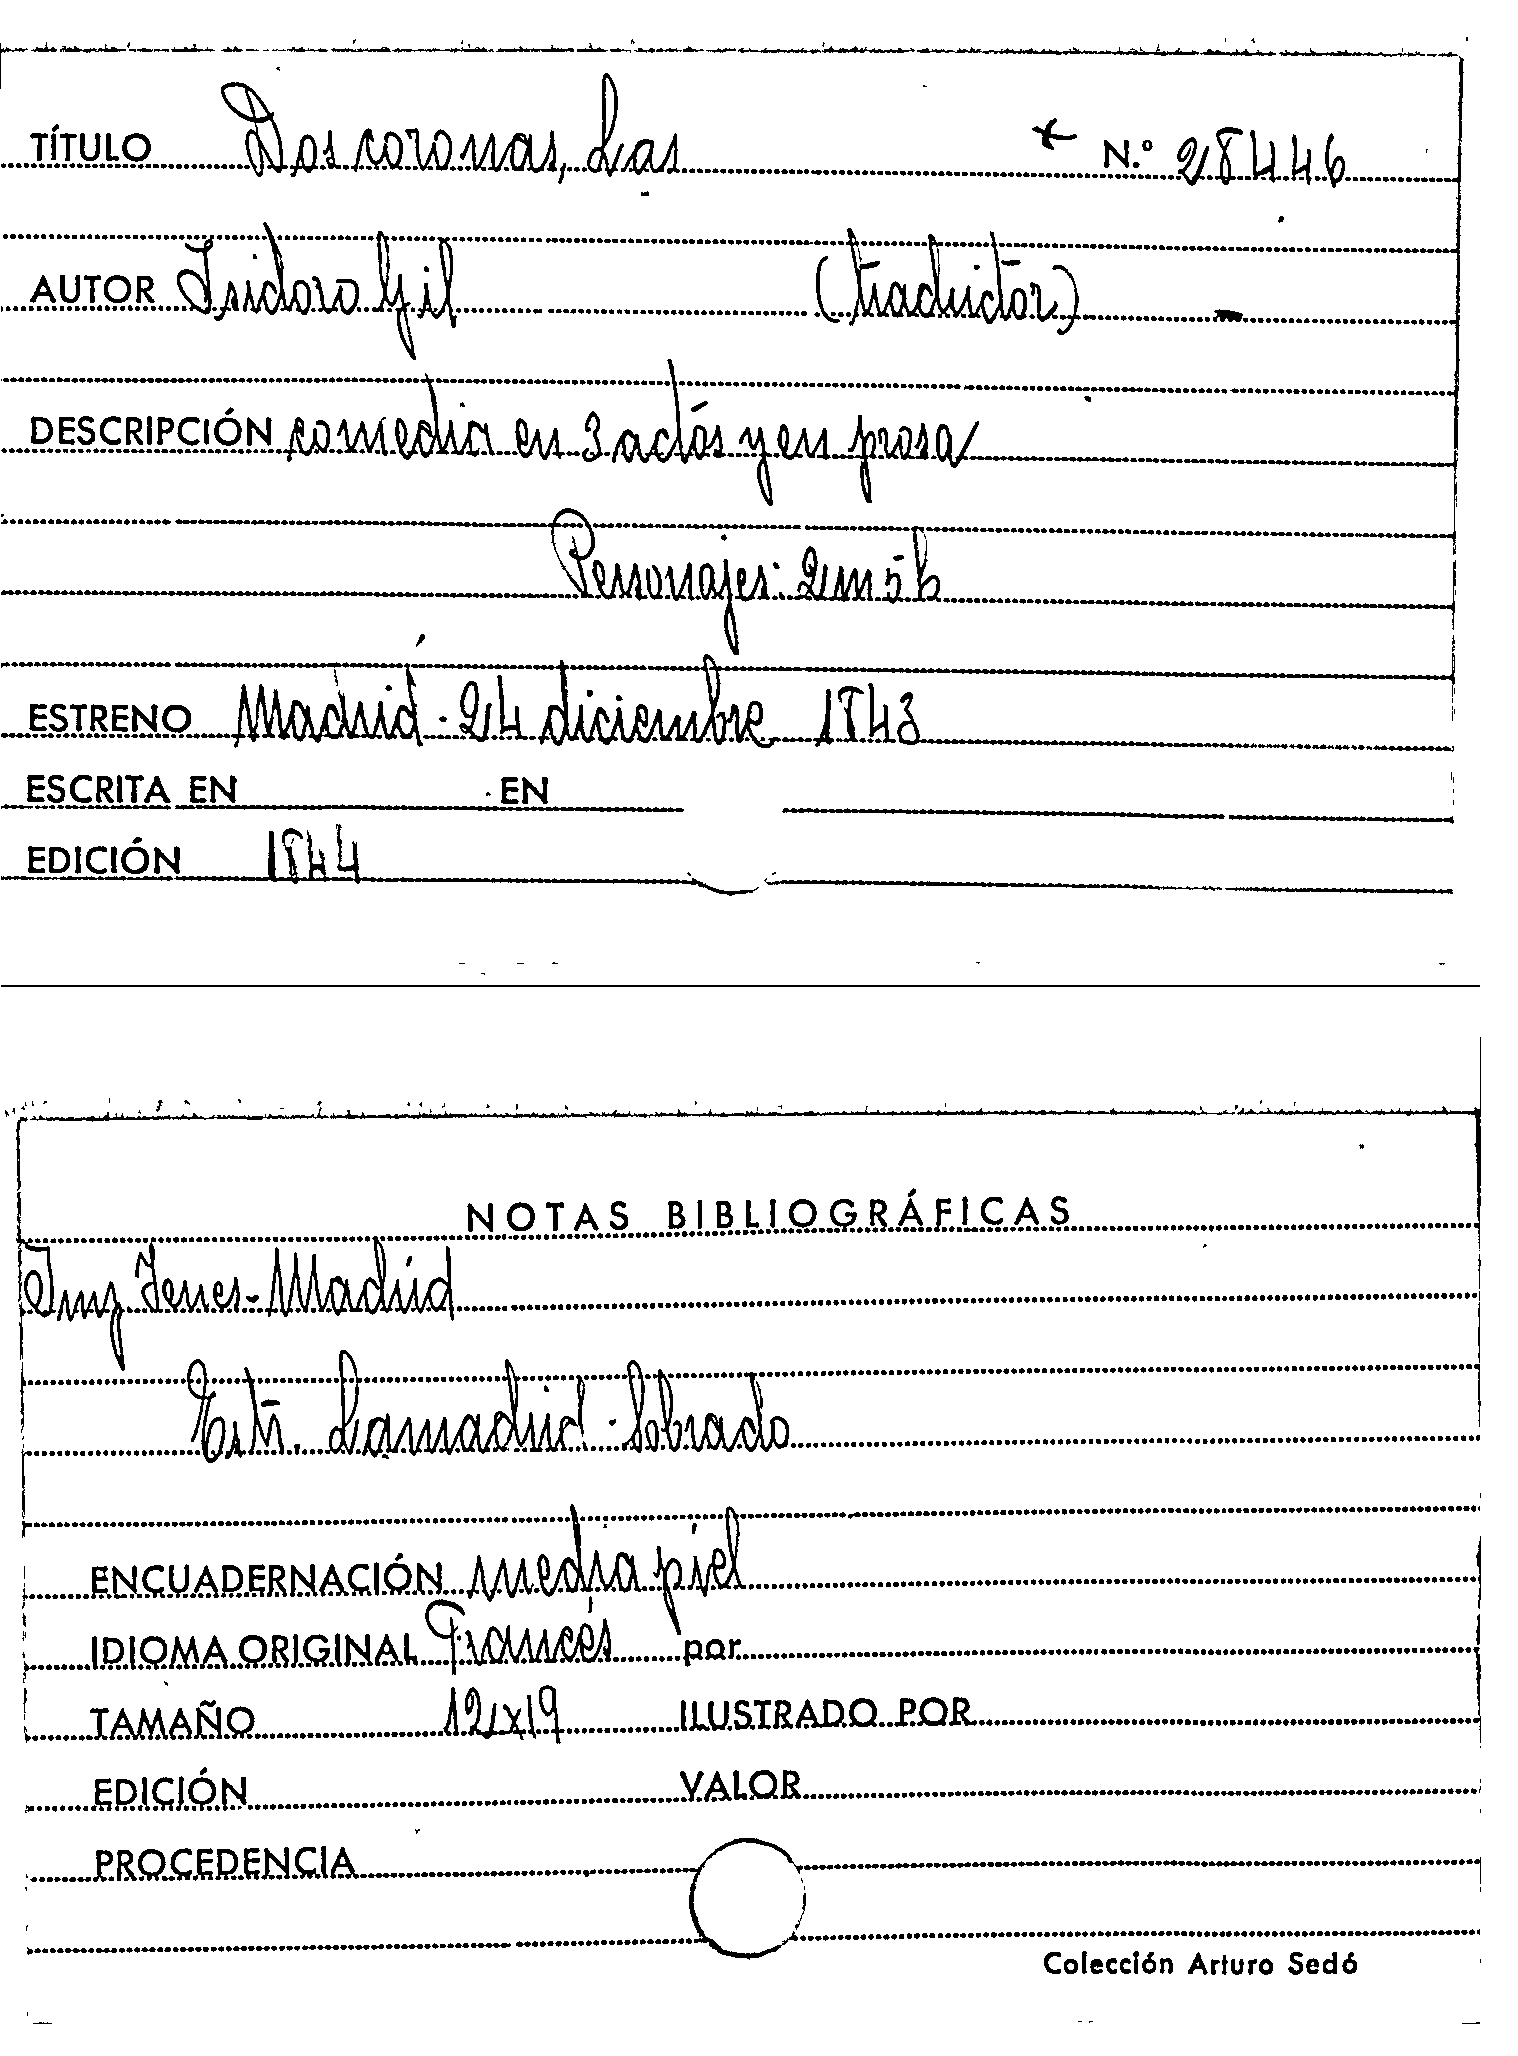 TÍTULO Dos coronas, Las * N.º 28446
AUTOR Isidoro Gil (traductor)
DESCRIPCIÓN comedia en 3 actos y en prosa
Personajes: 2 m 5 h
ESTRENO Madrid - 24 diciembre 1843
ESCRITA EN EN
EDICIÓN 1844
NOTAS BIBLIOGRÁFICAS
Imp Yenes - Madrid
Estr. Lamadrid - Sobrado
ENCUADERNACIÓN media piel
IDIOMA ORIGINAL Francés por
TAMAÑO 12x19 ILUSTRADO POR
EDICIÓN VALOR
PROCEDENCIA
Colección Arturo Sedó